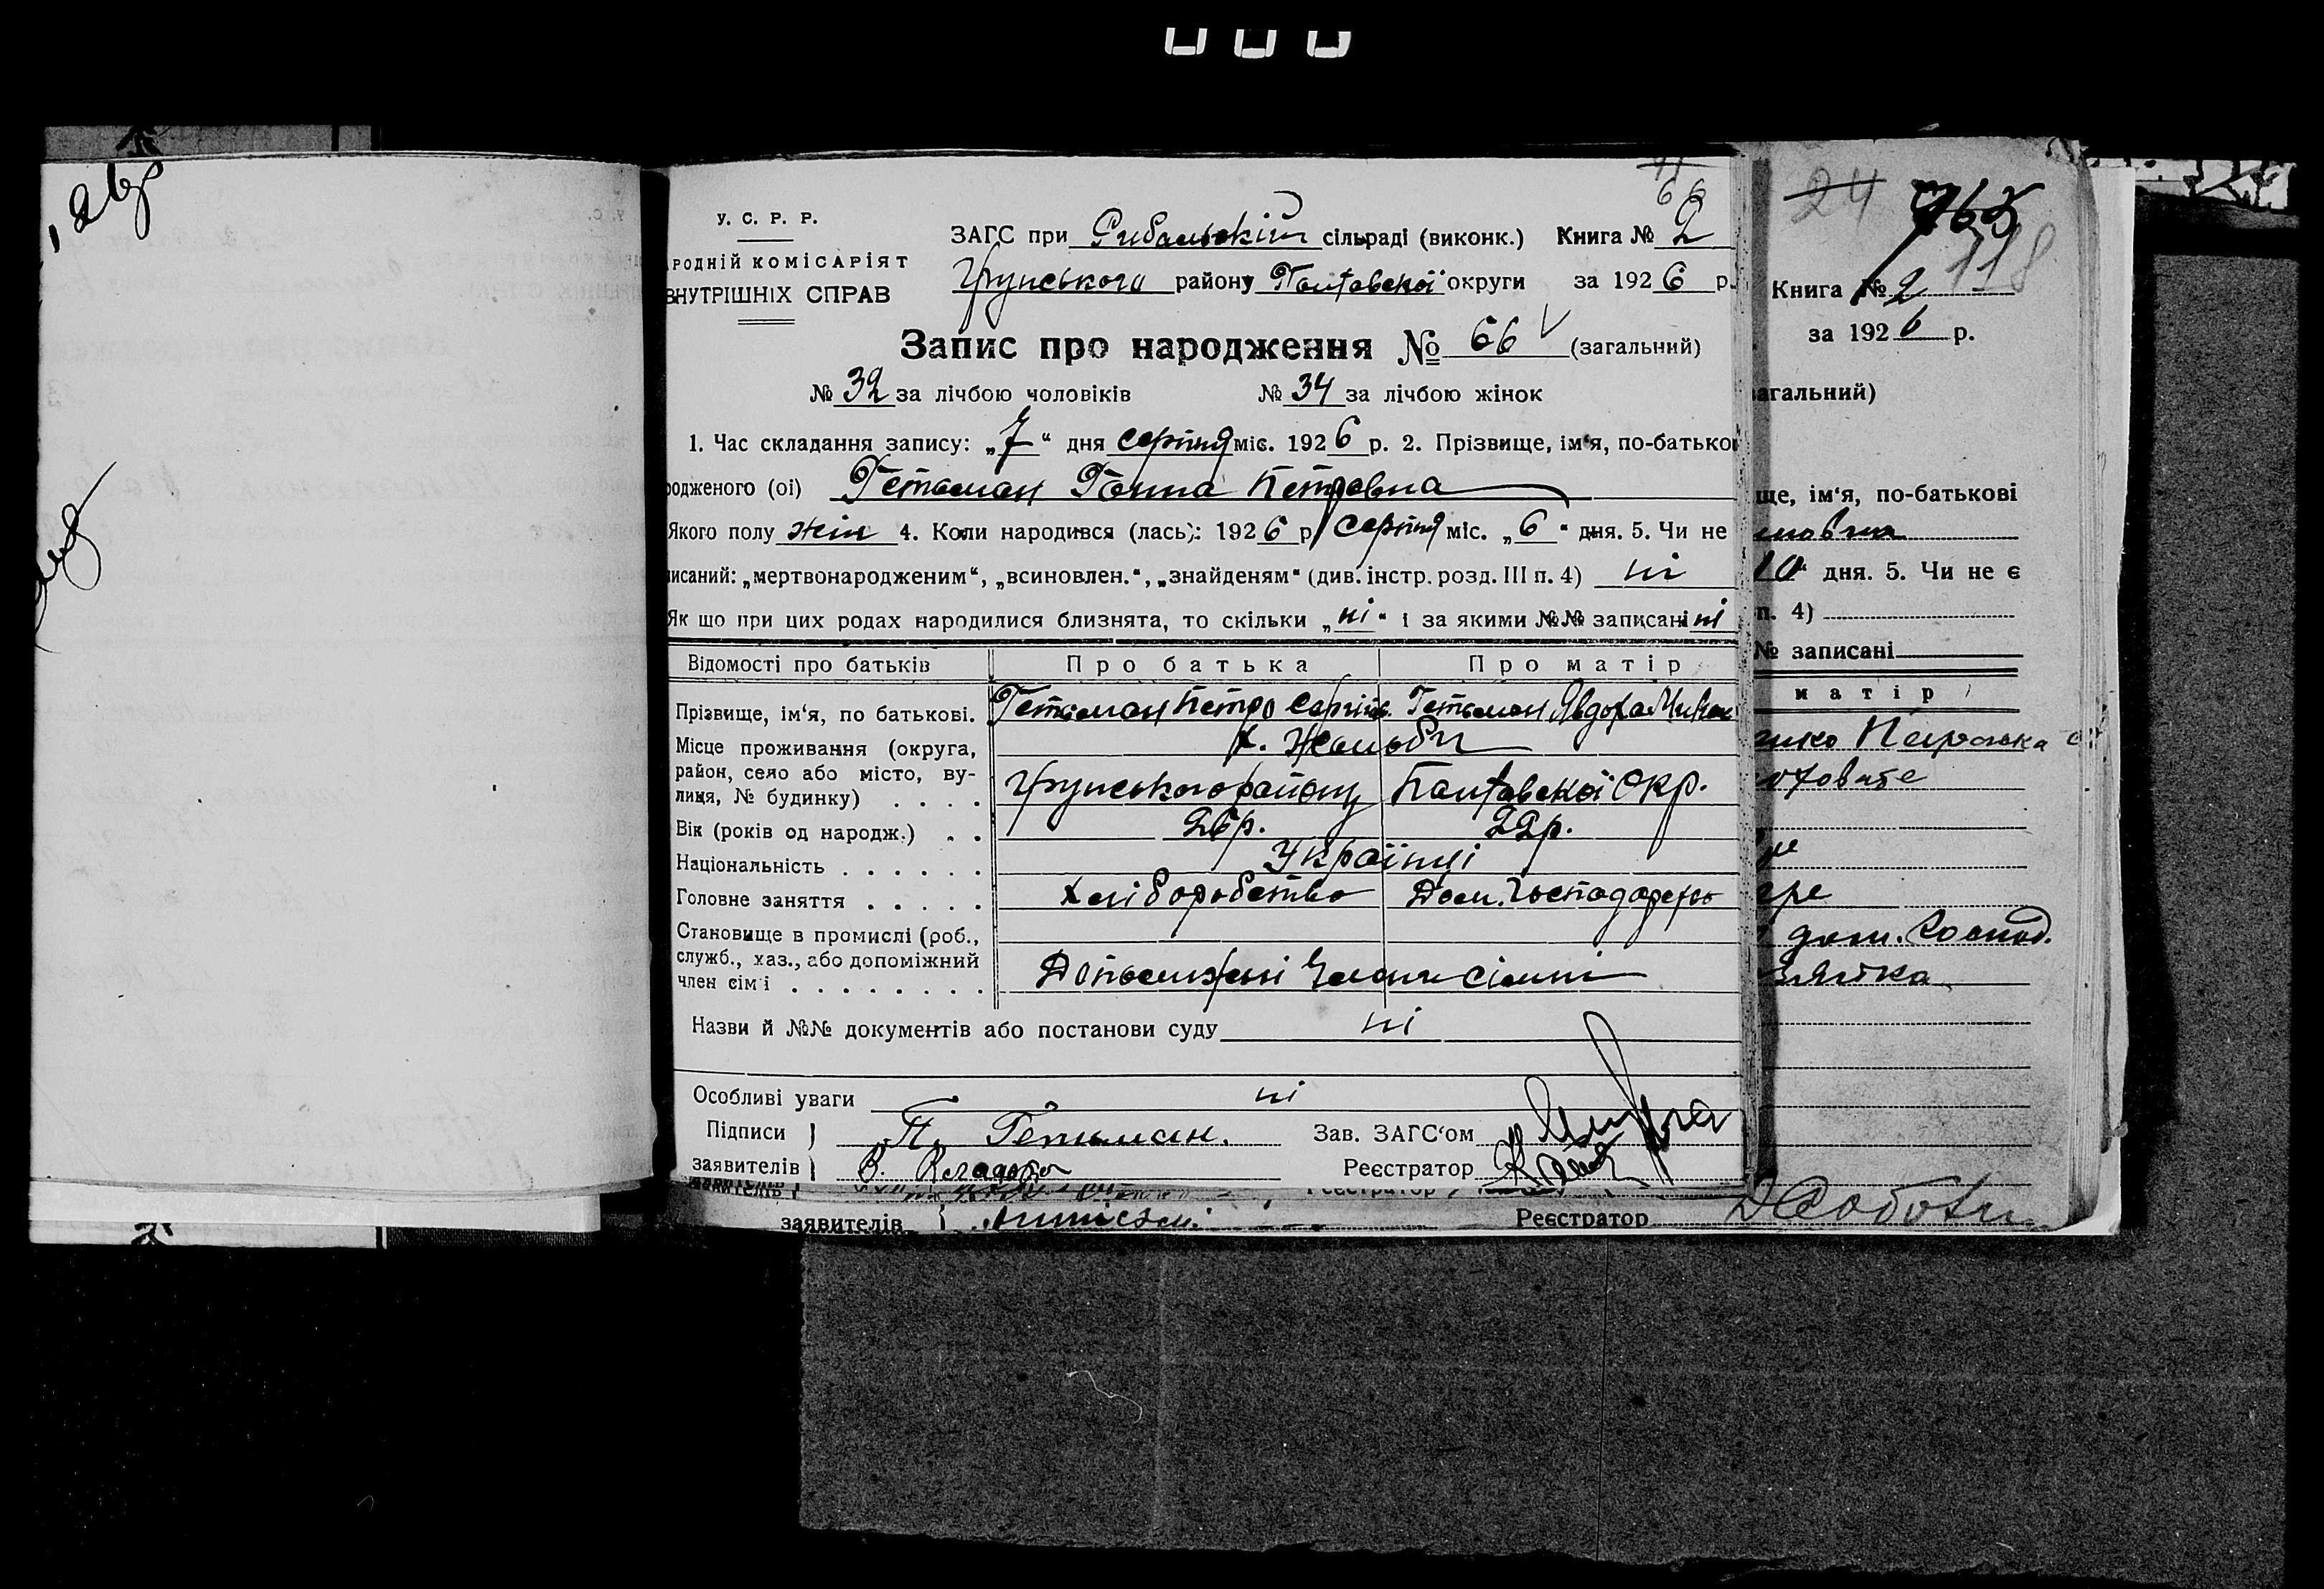 66
У. С. Р. Р.
ЗАГС при Рибальській сільраді (виконк.) Книга № 2
РОДНІЙ КОМІСАРІЯТ
ВНУТРІШНІХ СПРАВ
Грунського району Полтавської округи за 1926 р.
Запис про народження № 66 (загальний)
№ 32 за лічбою чоловіків № 34 за лічбою жінок
1. Час складання запису: „7“ дня серпня міс. 1926 р. 2. Прізвище, ім‘я, по-батько
родженого (ої) Гетьман Ганна Петровна
Якого полу жін 4. Коли народився (лась): 1926 р. серпня міс. „6“ дня. 5. Чи не
писаний: „мертвонародженим“, „всиновлен.“, „знайденям“ (див. інстр. розд. III п. 4) ні
Як що при цих родах народилися близнята, то скільки „ні“ і за якими №№ записані ні
Відомості про батьків Про батька Про матір
Прізвище, ім‘я, по батькові. Гетьман Петро Сергійов. Гетьман Явдоха
Місце проживання (округа,
район, село або місто, ву-
лиця, № будинку) . . . .
Грунського району Полтавської Окр.
Вік (років од народж.) . . 26р. 22р.
Національність . . . . . . Українці
Головне заняття . . . . . Хліборобство Дом. Господарство
Становище в промислі (роб.,
служб., хаз., або допоміжний
член сім‘ї . . . . . . . . .
Допоміжні члени сімьі
Назви й №№ документів або постанови суду ні
Особливі уваги ні
Підписи П. Гетьман. Зав. ЗАГС‘ом
заявителів В. Реєстратор
заявителів Реєстратор
24
118
Книга № 2
за 1926 р.
загальний)
ще, ім‘я, по-батькові
10“ дня. 5. Чи не є
п. 4)
№ записані
матір
дом. Господ.